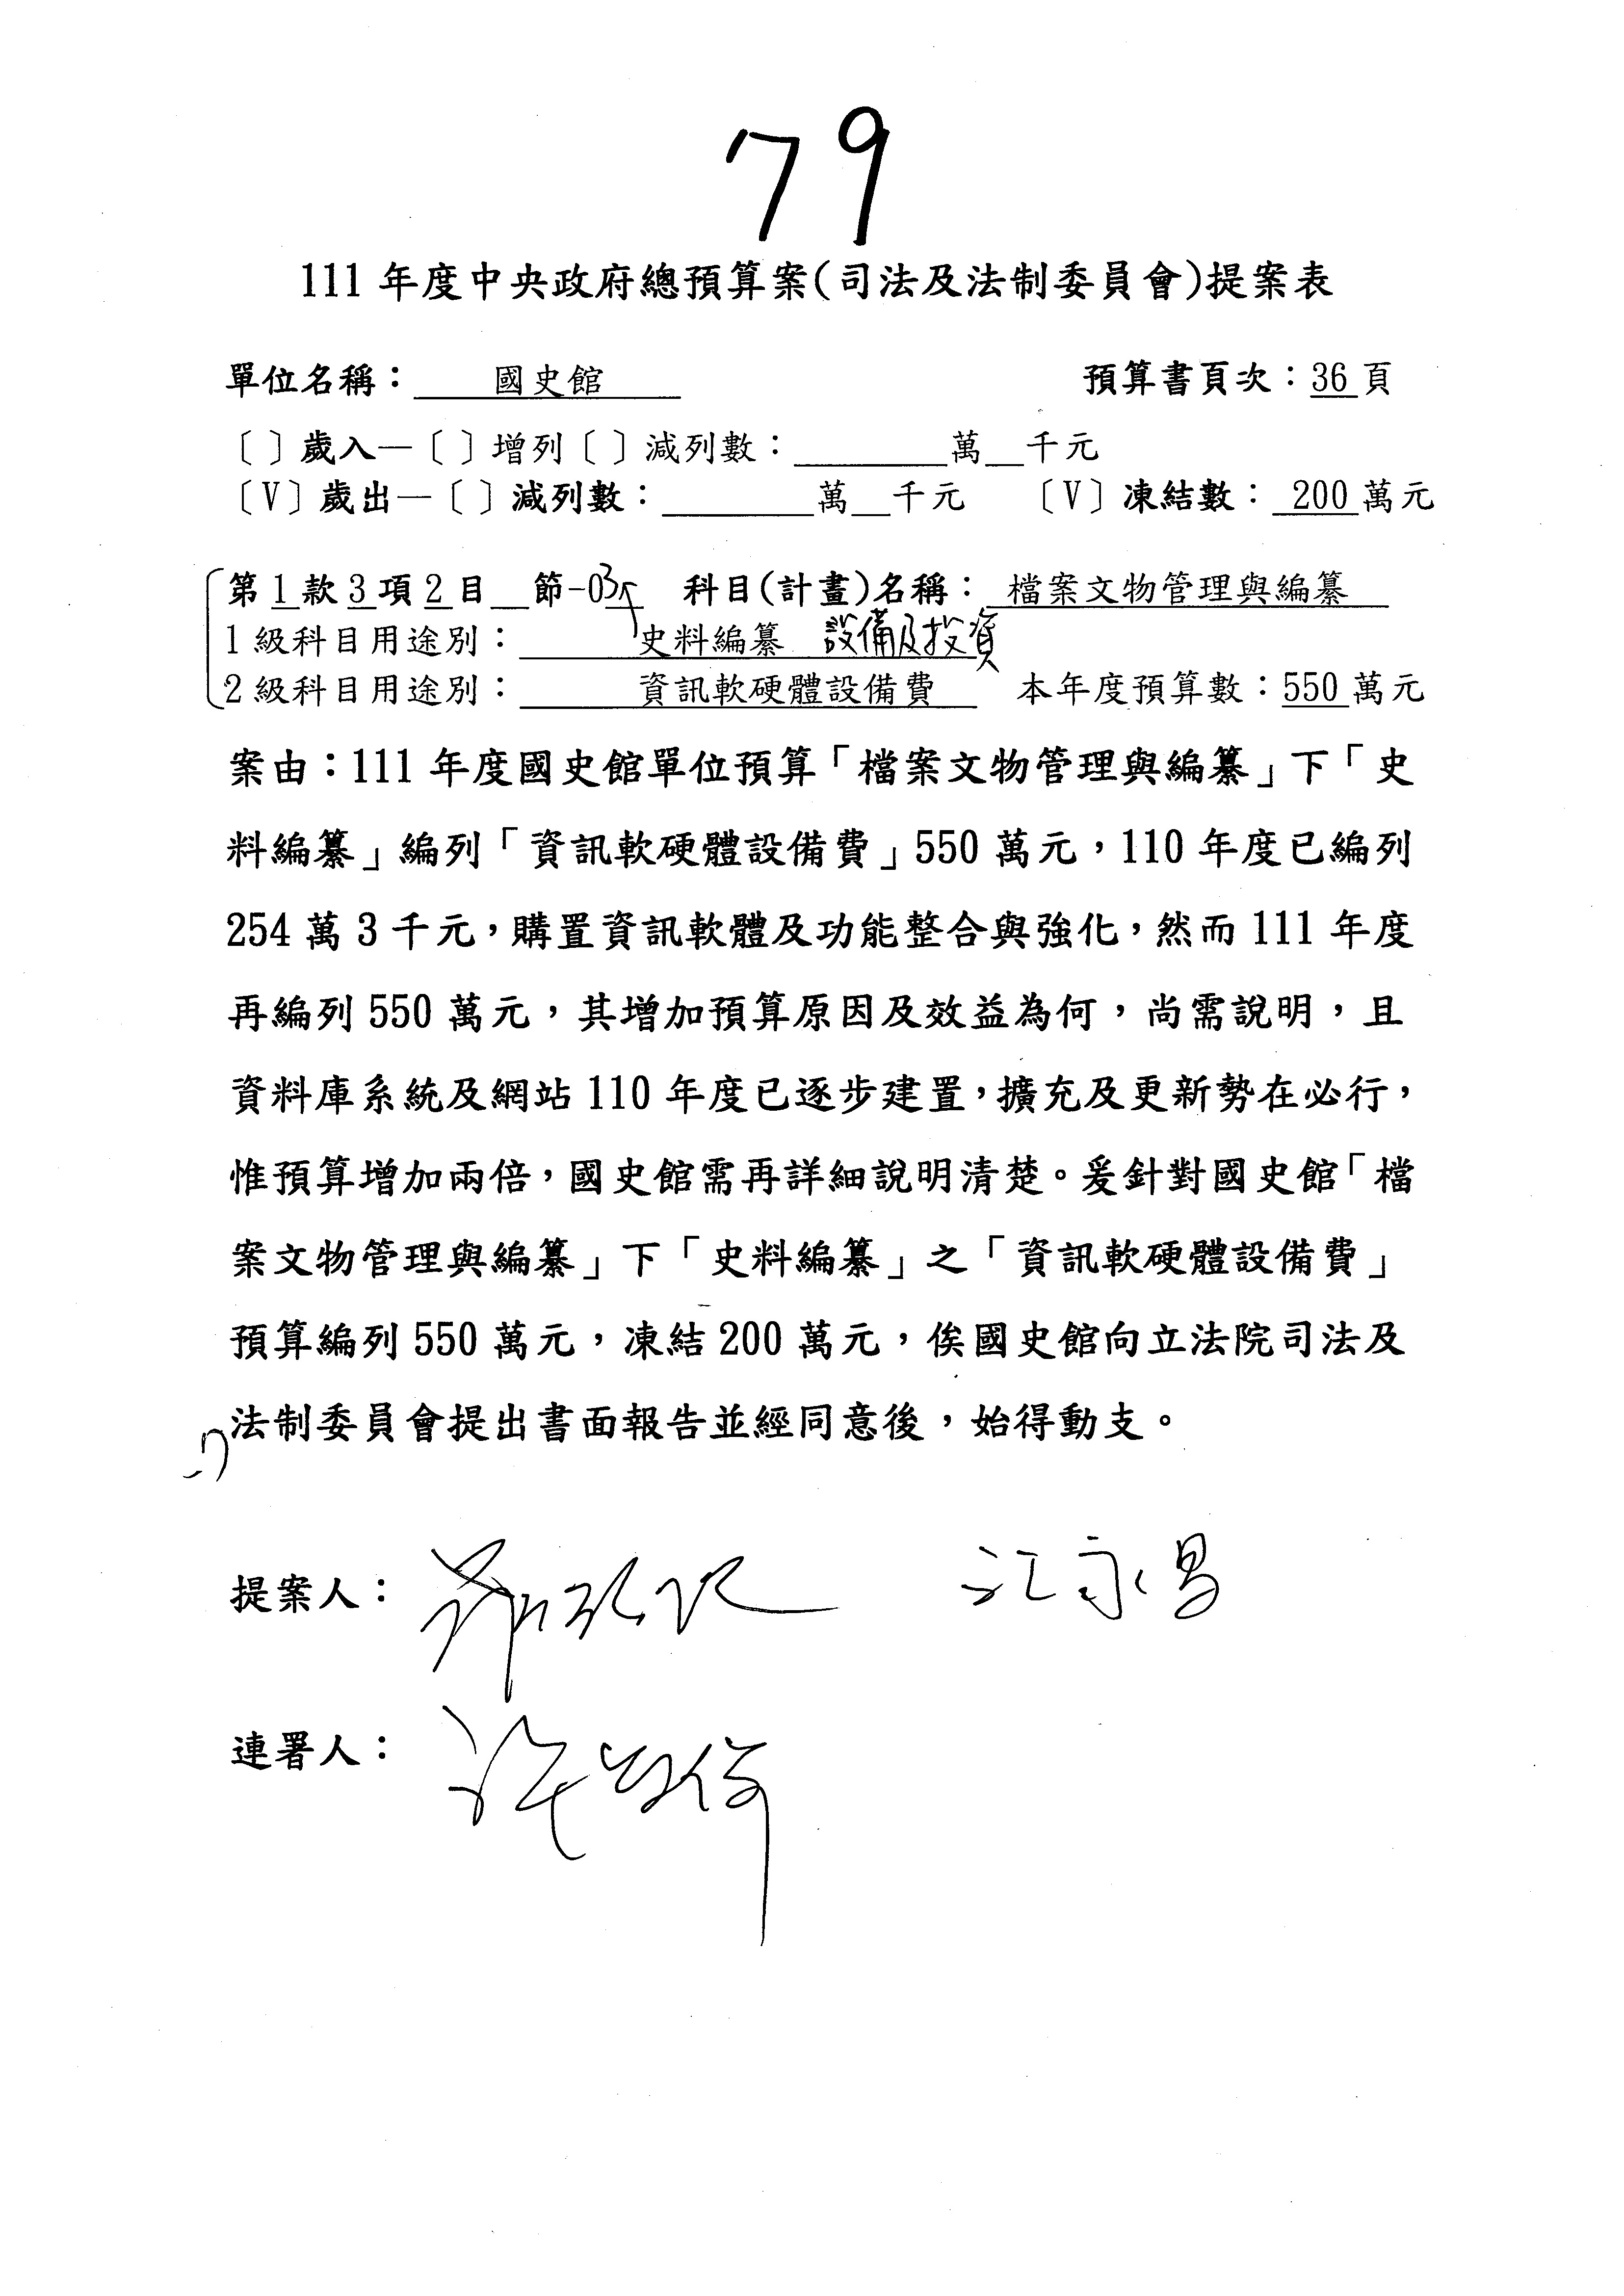 79
111年度中央政府總預算案(司法及法制委員會)提案表
單位名稱： 國史館 預算書頁次：36頁
〔 〕歲入—〔 〕增列〔 〕減列數：＿＿萬＿千元
〔V〕歲出—〔 〕減列數：＿＿萬＿千元 〔V〕凍結數： 200萬元
第1款3項2目＿節-03 科目(計畫)名稱： 檔案文物管理與編纂
1級科目用途別： 史料編纂 設備及投資
2級科目用途別： 資訊軟硬體設備費 本年度預算數：550萬元
案由：111年度國史館單位預算「檔案文物管理與編纂」下「史
料編纂」編列「資訊軟硬體設備費」550萬元，110年度已編列
254萬3千元，購置資訊軟體及功能整合與強化，然而111年度
再編列550萬元，其增加預算原因及效益為何，尚需說明，且
資料庫系統及網站110年度已逐步建置，擴充及更新勢在必行，
惟預算增加兩倍，國史館需再詳細說明清楚。爰針對國史館「檔
案文物管理與編纂」下「史料編纂」之「資訊軟硬體設備費」
預算編列550萬元，凍結200萬元，俟國史館向立法院司法及
法制委員會提出書面報告並經同意後，始得動支。
提案人： 江永昌
連署人：